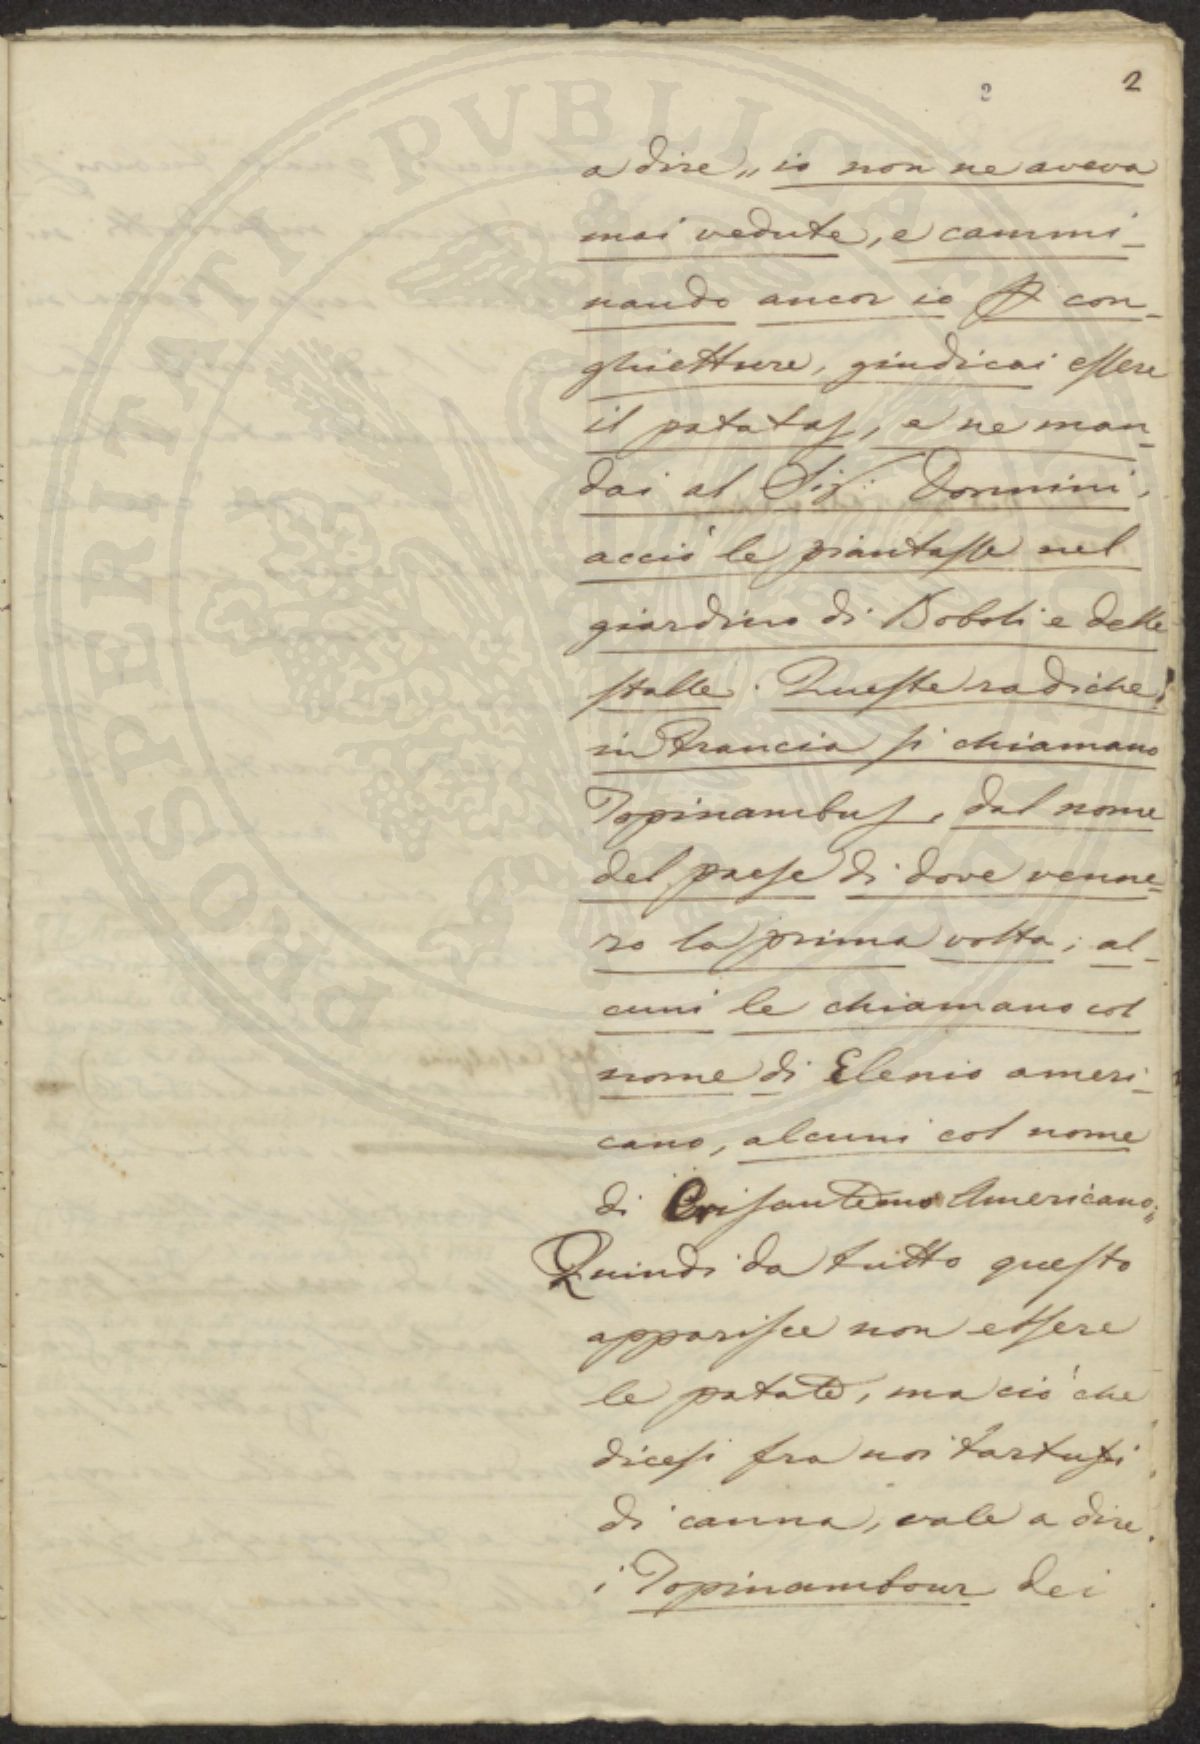 2 2
a dire „ io non ne aveva
mai vedute, e cammi-
nando ancor io p con-
ghietture, giudicai essere
il patatas, e ne man-
dai al Sig: Donnini,
acciò le piantasse nel
giardino di Boboli e delle
stalle. Queste radiche
in Francia si chiamano
Topinambus, dal nome
del paese di dove venne-
ro la prima volta; al-
cuni le chiamano col
nome di Elenio ameri-
cano, alcuni col nome
di Crisantemo Americano„
Quindi da tutto questo
apparisce non essere
le patate, ma ciò che
dicesi fra noi tartufi
di canna, vale a dire
i Topinambour dei
PROSPERITATI PVBLICAE